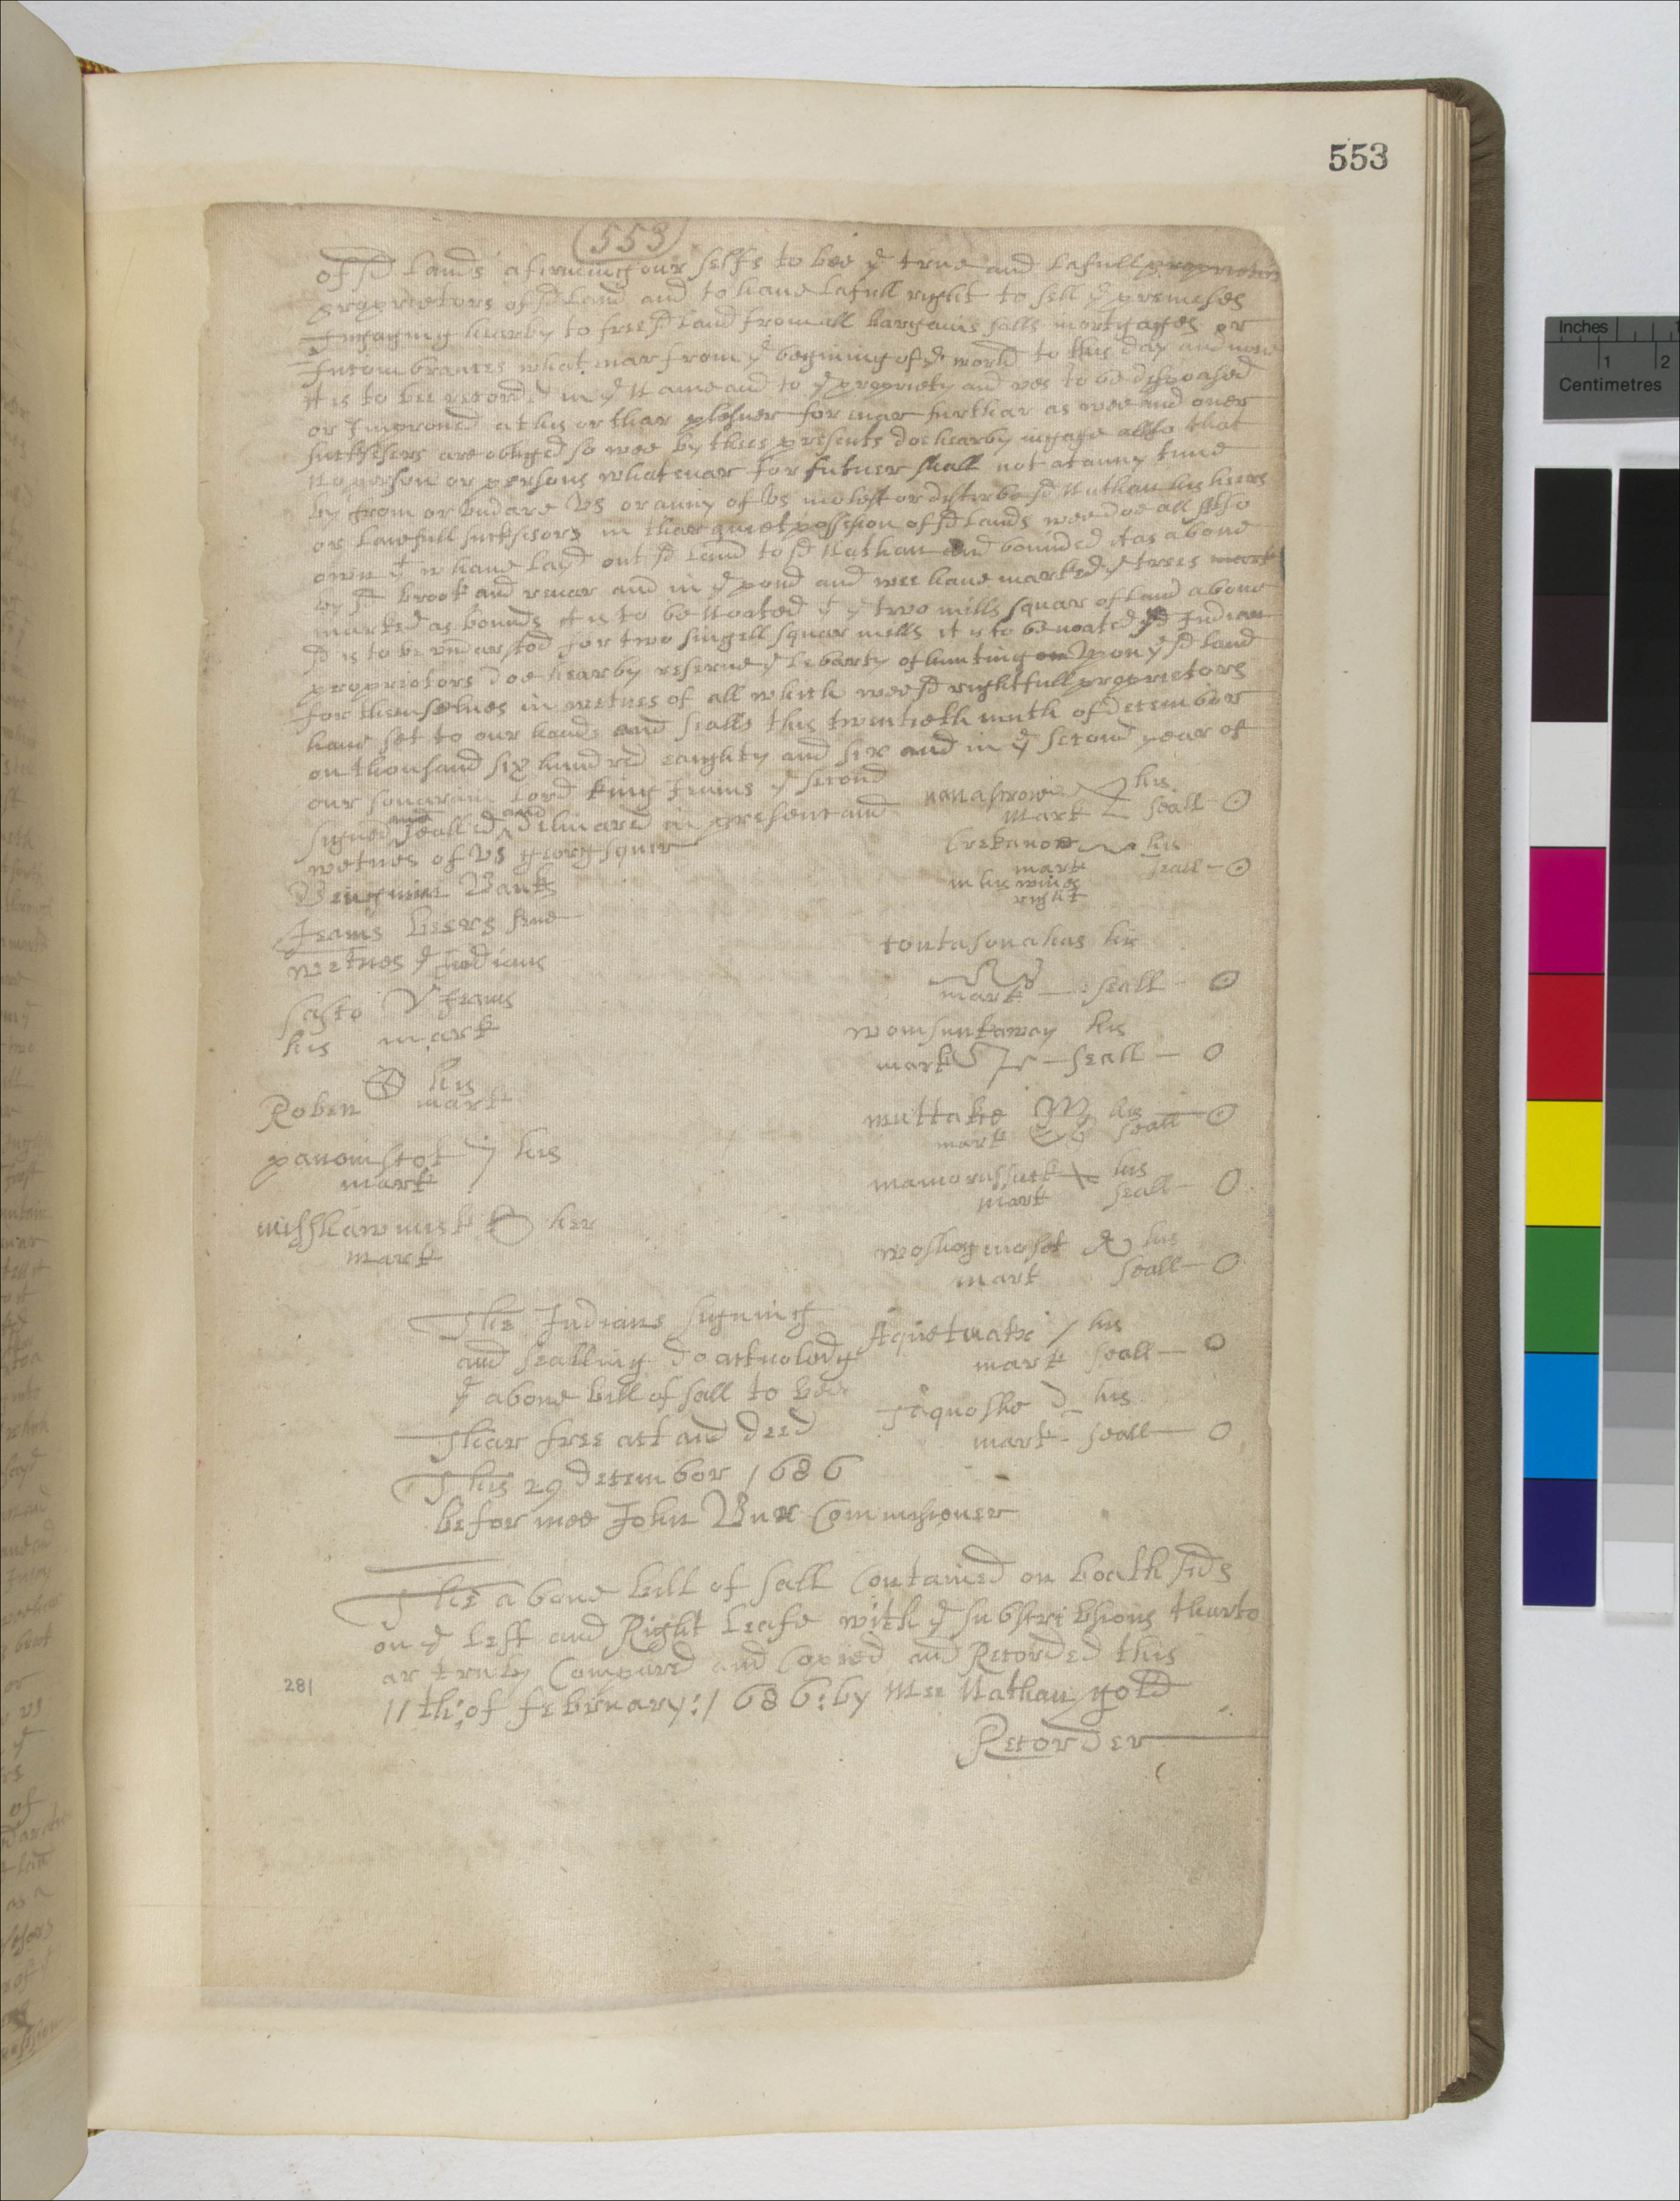 553
553
of sd Lands afirming our selfs to bee ye true and Lafull proprietors
proprietors of sd Land and to haue Lafull right to sell ye premeses
Ingaging hearby to free sd Land from all bargains salls mortgages or
Incombrances what euar from ye begining of ye world to this day and now
it is to bee recorded in ye name and to ye propriety and ves to be disposed
or Improued at his or thar plesuer for euar furthar as wee and ouer
sucksesers are obliged so wee by thees presents doe hearby ingage allso that
no person or persons whateuar for futuer shall not at anny time
by from or vndare Vs or anny of Vs molest or disterbe sd Nathan his hiers
or Lawfull sucksesors in thar quiet possesion of sd Lands wee doe all allso
own yt w haue Layd out sd Land to sd Nathan and bounded it as aboue
by sd brook and reuar and in ye pond and wee haue marked ye trees mark
marked as bounds it is to be Noated yt ye two mills squar of Land aboue
sd is to be vndarstod for two singell squar mills it is to be noated sd Indian
proprietors doe hearby reserue ye Lebarty of hunting on Vpon ye sd Land
for themselues in wetnes of all which wee sd rightfull proprietors
haue set to our hands and sealls this twentieth ninth of decembor
on thousand six hundred eaighty and six and in ye second year of
our souarain Lord king Jeams ye second
signed and sealled and deliuared in present and
wetnes of Vs georg squir
Bengimin Banks
Jeams beers sene
wetnes ye Indians
sasto Jeams
his mark
Roben his
mark
panomscot his
mark
misshawmish her
mark
nanascrow his
Mark seall
Crekanoe his
mark seall
in his wiues
right
contasonahas his
mark seall
womsuntaway his
mark seall
muttake his
mark seall
mamorussuck his
mark seall
woshagenoset his
mark seall
Aquetwake his
mark seall
Aquoshe his
mark seall
The Indians signing
and sealling do acknoledg
ye aboue bill of sall to bee
Thear free act and deed
This 29 decembor 1686
befor mee John Bur Commisioner
The aboue bill of sall Contained on boath sids
on ye Left and Right Leafe with ye subscribsions tharto
ar truly Compared and Copied and Recorded this
11th: of february: 1686: by Mee Nathan gold
Recorder
281
Inches
1
2
Centimetres